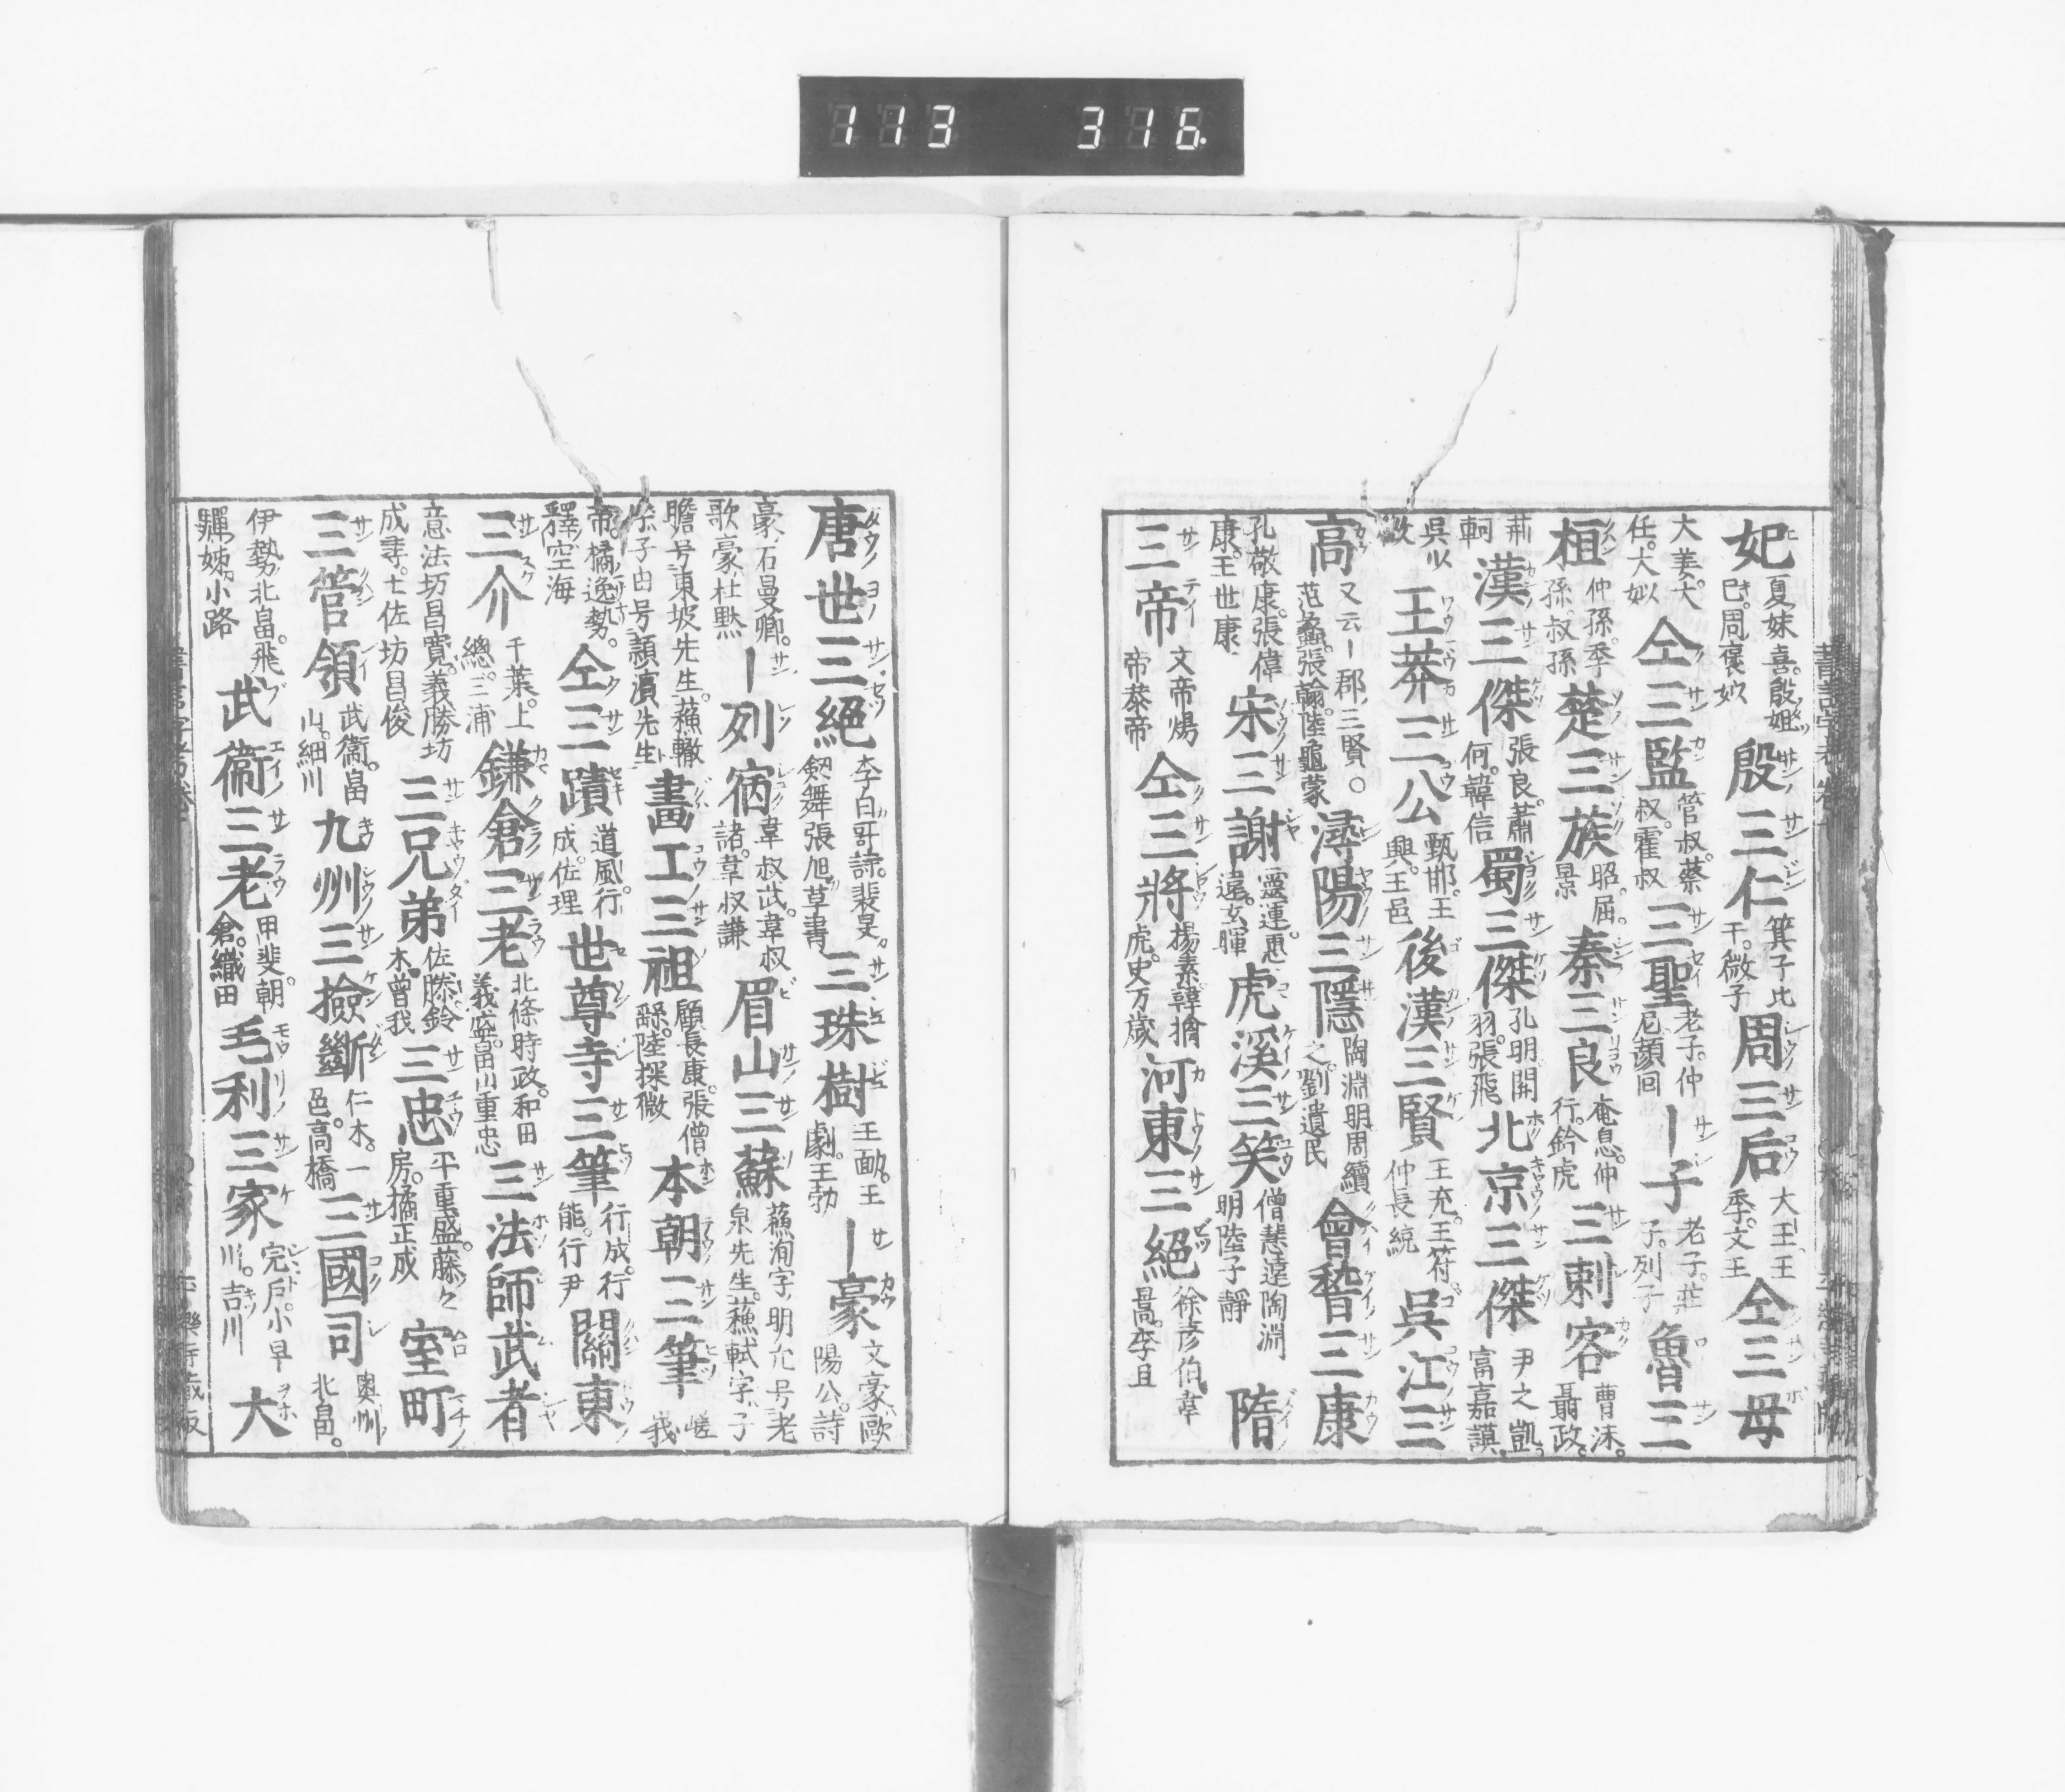 113 316.
妃 夏妺喜。殷妲己。周褒姒 殷三仁 箕子比干。微子 周三后 大王王季。文王 仝三母
大姜大任。大姒 仝三監 管叔。蔡叔。霍叔 三聖 老子。仲尼顔回 ｜子 老子。莊子。列子 魯三
桓 仲孫。季孫。叔孫 楚三族 昭。屈。景 秦三良 奄息。仲行。鈴虎 三刺客 曹沫。聶政。
荊軻 漢三傑 張良。蕭何。韓信 蜀三傑 孔明関羽。張飛 北京三傑 尹之凱。富嘉謨。
呉 王莽三公 甄邯。王興。王邑 後漢三賢 王充。王符。仲長統 呉江三
高 又云｜郡三賢。范蠡。張翰。陸龜蒙 潯陽三隱 陶淵明周續之。劉遺民 會稽三康
孔敬康。張偉康。王世康 宋三謝 靈運。惠遠。玄暉 虎溪三笑 僧慧遠陶淵明陸子靜 隋
三帝 文帝煬帝恭帝 仝三將 楊素韓擒虎。史万歳 河東三絕 徐彦伯韋暠。李且
唐世三絕 李白哥詩。裴旻劔舞張旭草書 三珠樹 王勔。王劇。王勃 ｜豪 文豪歐陽公。詩
豪石曼卿。歌豪杜黙 ｜列宿 韋叔武。韋叔諸。韋叔謙 眉山三蘇 蘓洵字明允号老泉先生。蘓軾字子
瞻号東坡先生。蘓轍字子由号頴濱先生 畫工三祖 顧長康。張僧繇。陸探微 本朝三筆 嵯峩
帝。橘逸勢。釋空海 仝三蹟 道風。行成。佐理 世尊寺三筆 行成。行能。行尹 關東
三介 千葉。上總。三浦 鎌倉三老 北條時政。和田義盛。畠山重忠 三法師武者
意法坊昌寛。義勝坊成尋。土佐坊昌俊 三兄弟 佐滕。鈴木。曾我 三忠 平重盛。藤々房。橘正成 室町
三管領 武衞。畠山。細川 九州三撿斷 仁木。一邑。高橋 三國司 奥州北畠。
伊勢北畠。飛驒姊小路 武衞三老 甲斐。朝倉。織田 毛利三家 完戶。小早川。吉川 大